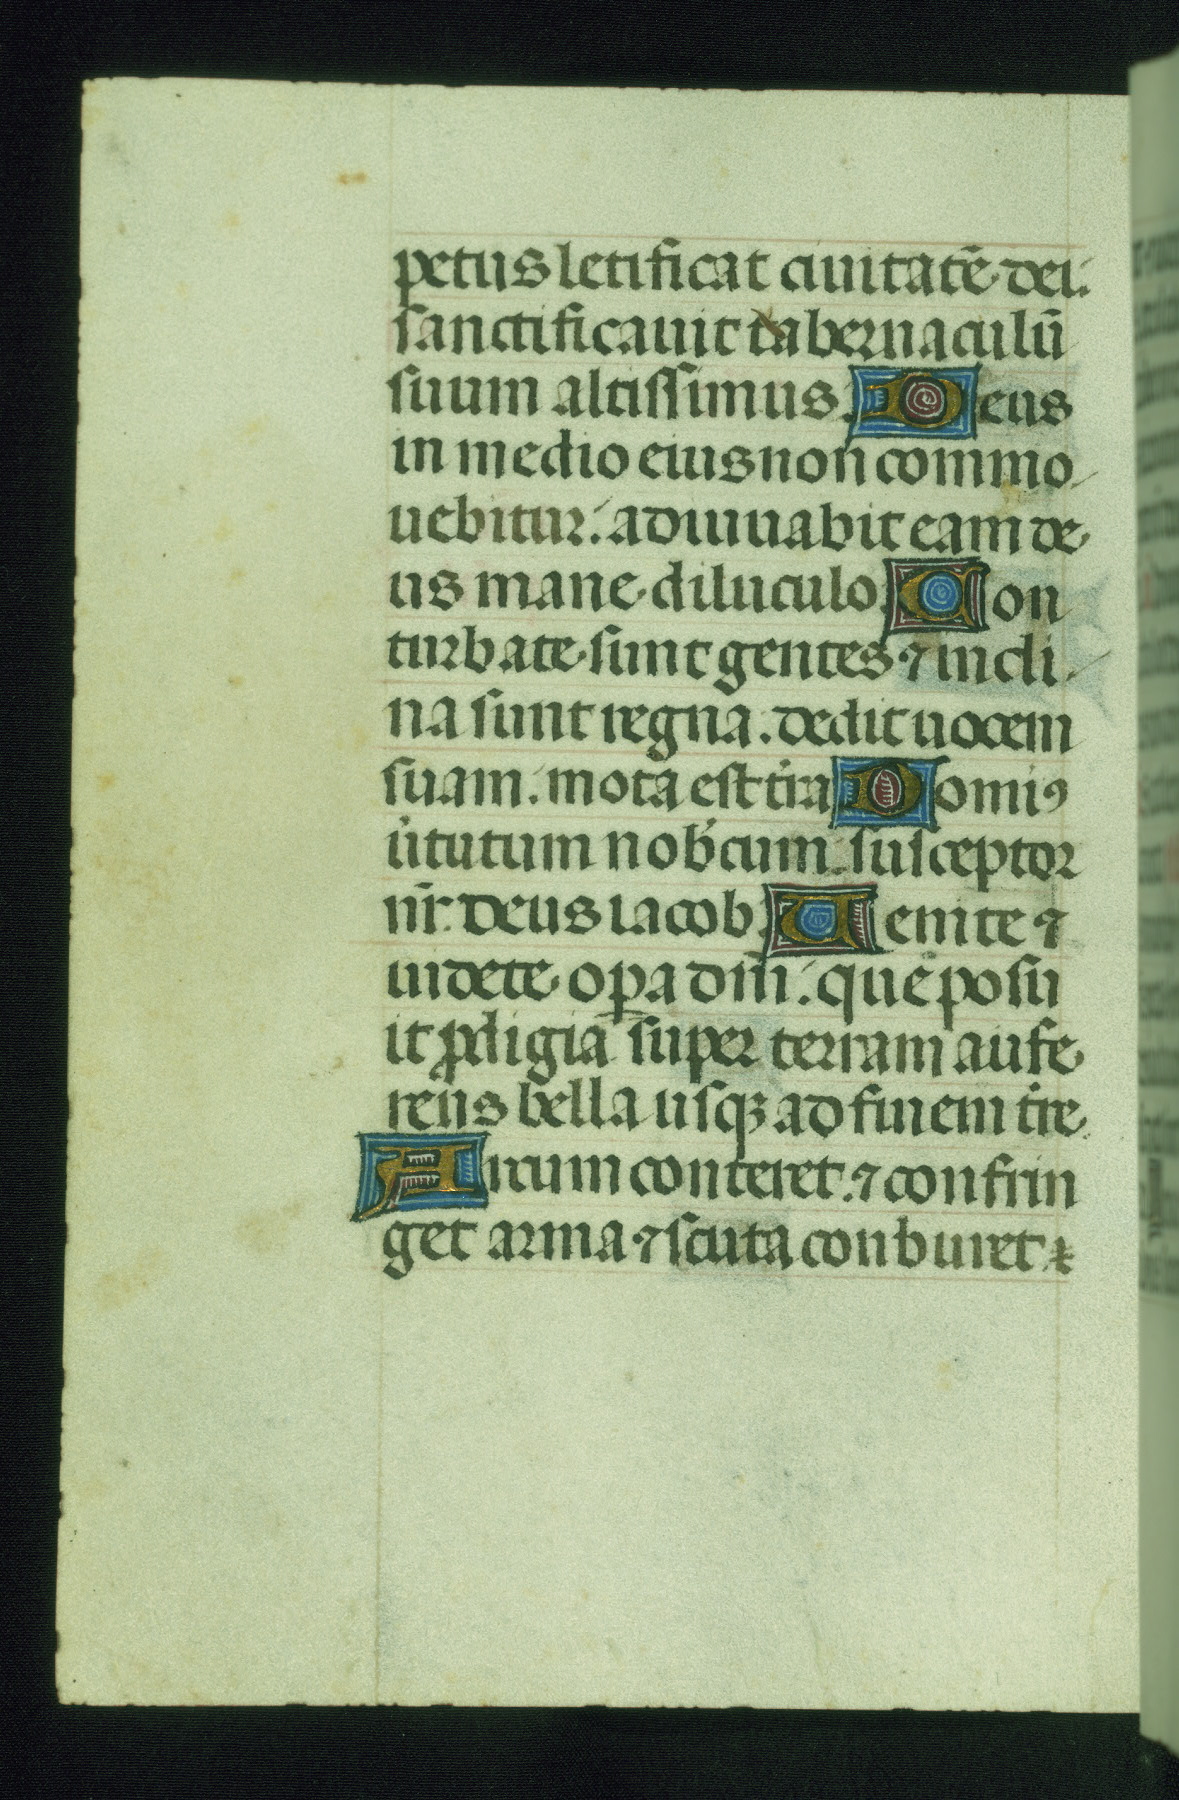 petus letificat ciuitatē dei:
sanctificauit tabernaculū
suum altissimus. Deus
in medio eius non commo
uebitur: adiuuabit eam de
us mane diluculo. Con
turbate sunt gentes ⁊ incli
na sunt regna. dedit uocem
suam. mota est tr̄a Domiꝰ
ur̄tutum nob̄cum. susceptor
nr̄. deus iacob. Uenite ⁊
uidete oꝑa dn̄i: que posu
it ꝓdigia super terram aufe
rens bella usqꝫ ad finem tr̄e
Arcum conteret. ⁊ confrin
get arma ⁊ scuta conburet